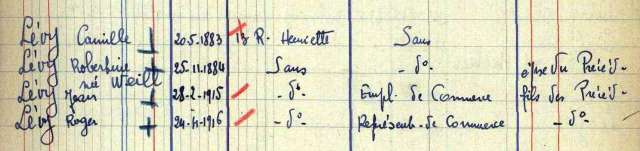 Lévy Camille 20.5.1883 13 R. Henriette Sans
Lévy Robertine 25.11.1884 Sans - d° - épse du Précéd -
né Weill
Lévy Jean 28-2-1915 - d° - Empl. de Commerce fils des Précéd -
Lévy Roger 24-11-1916 - d° - Représent. de Commerce - d° -